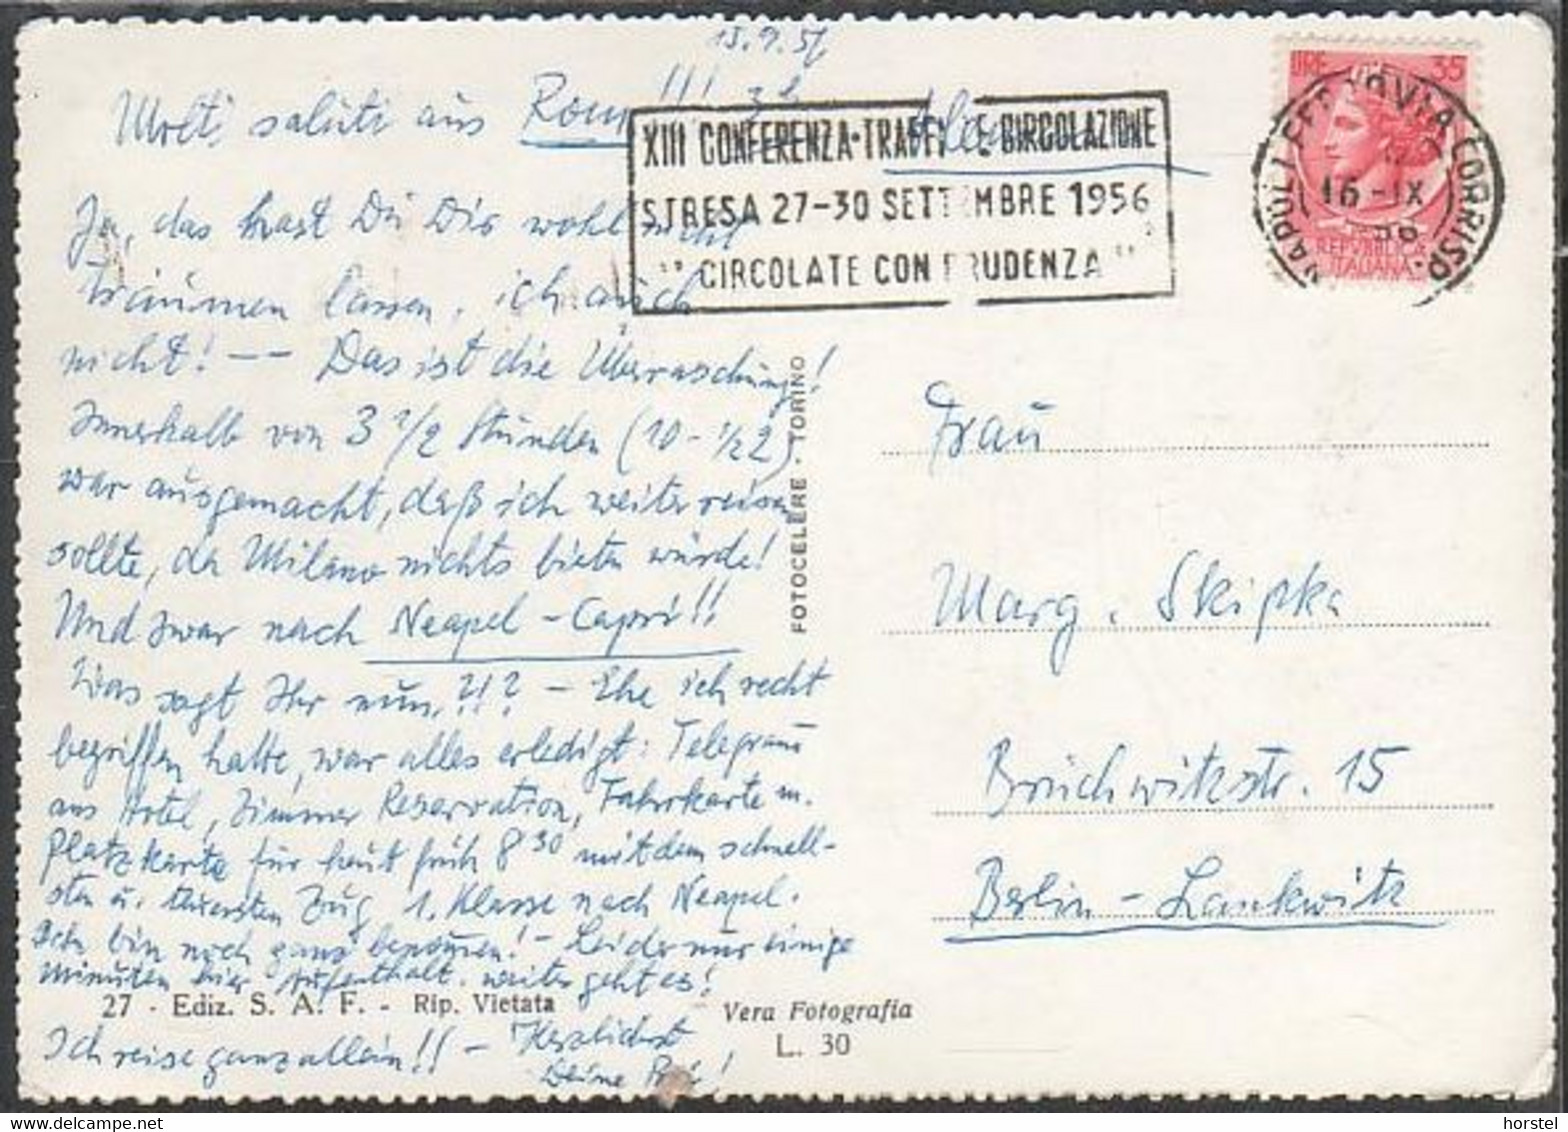 15.9.56
Molti saluti aus Rom!!!
XIII CONFERENZA·TRAFF E CIRCOLAZIONE
STRESA 27-30 SETTEMBRE 1956
"CIRCOLATE CON PRUDENZA"
LIRE 35
NAPOLI FERROVIA CORRISP.
16-IX
56
REPUBBLICA
ITALIANA
Ja, das hast Du Dir wohl nicht
träumen lassen, ich auch
nicht! -- Das ist die Überraschung!
Innerhalb von 3 1/2 Stunden (10-1/22)
war ausgemacht, daß ich weiter reisen
sollte, da Milano nichts bieten würde!
Und zwar nach Neapel-Capri!!
Was sagt Ihr nun?!? - Ehe ich recht
begriffen hatte, war alles erledigt: Telegramm
ans Hotel, Zimmer Reservation, Fahrkarte u.
Platzkarte für heut früh 8 30 mit dem schnell-
sten u. teuersten Zug 1. Klasse nach Neapel.
Ich bin noch ganz benommen! - Leider nur einige
Minuten hier Aufenthalt, weiter geht es!
27 - Ediz. S. A. F. - Rip. Vietata
Vera Fotografia
L. 30
Ich reise ganz allein!! - Herzlichst
Deine
FOTOCELERE · TORINO
Frau
Marg. Skipka
Bruchwitzstr. 15
Berlin-Lankwitz
horstel